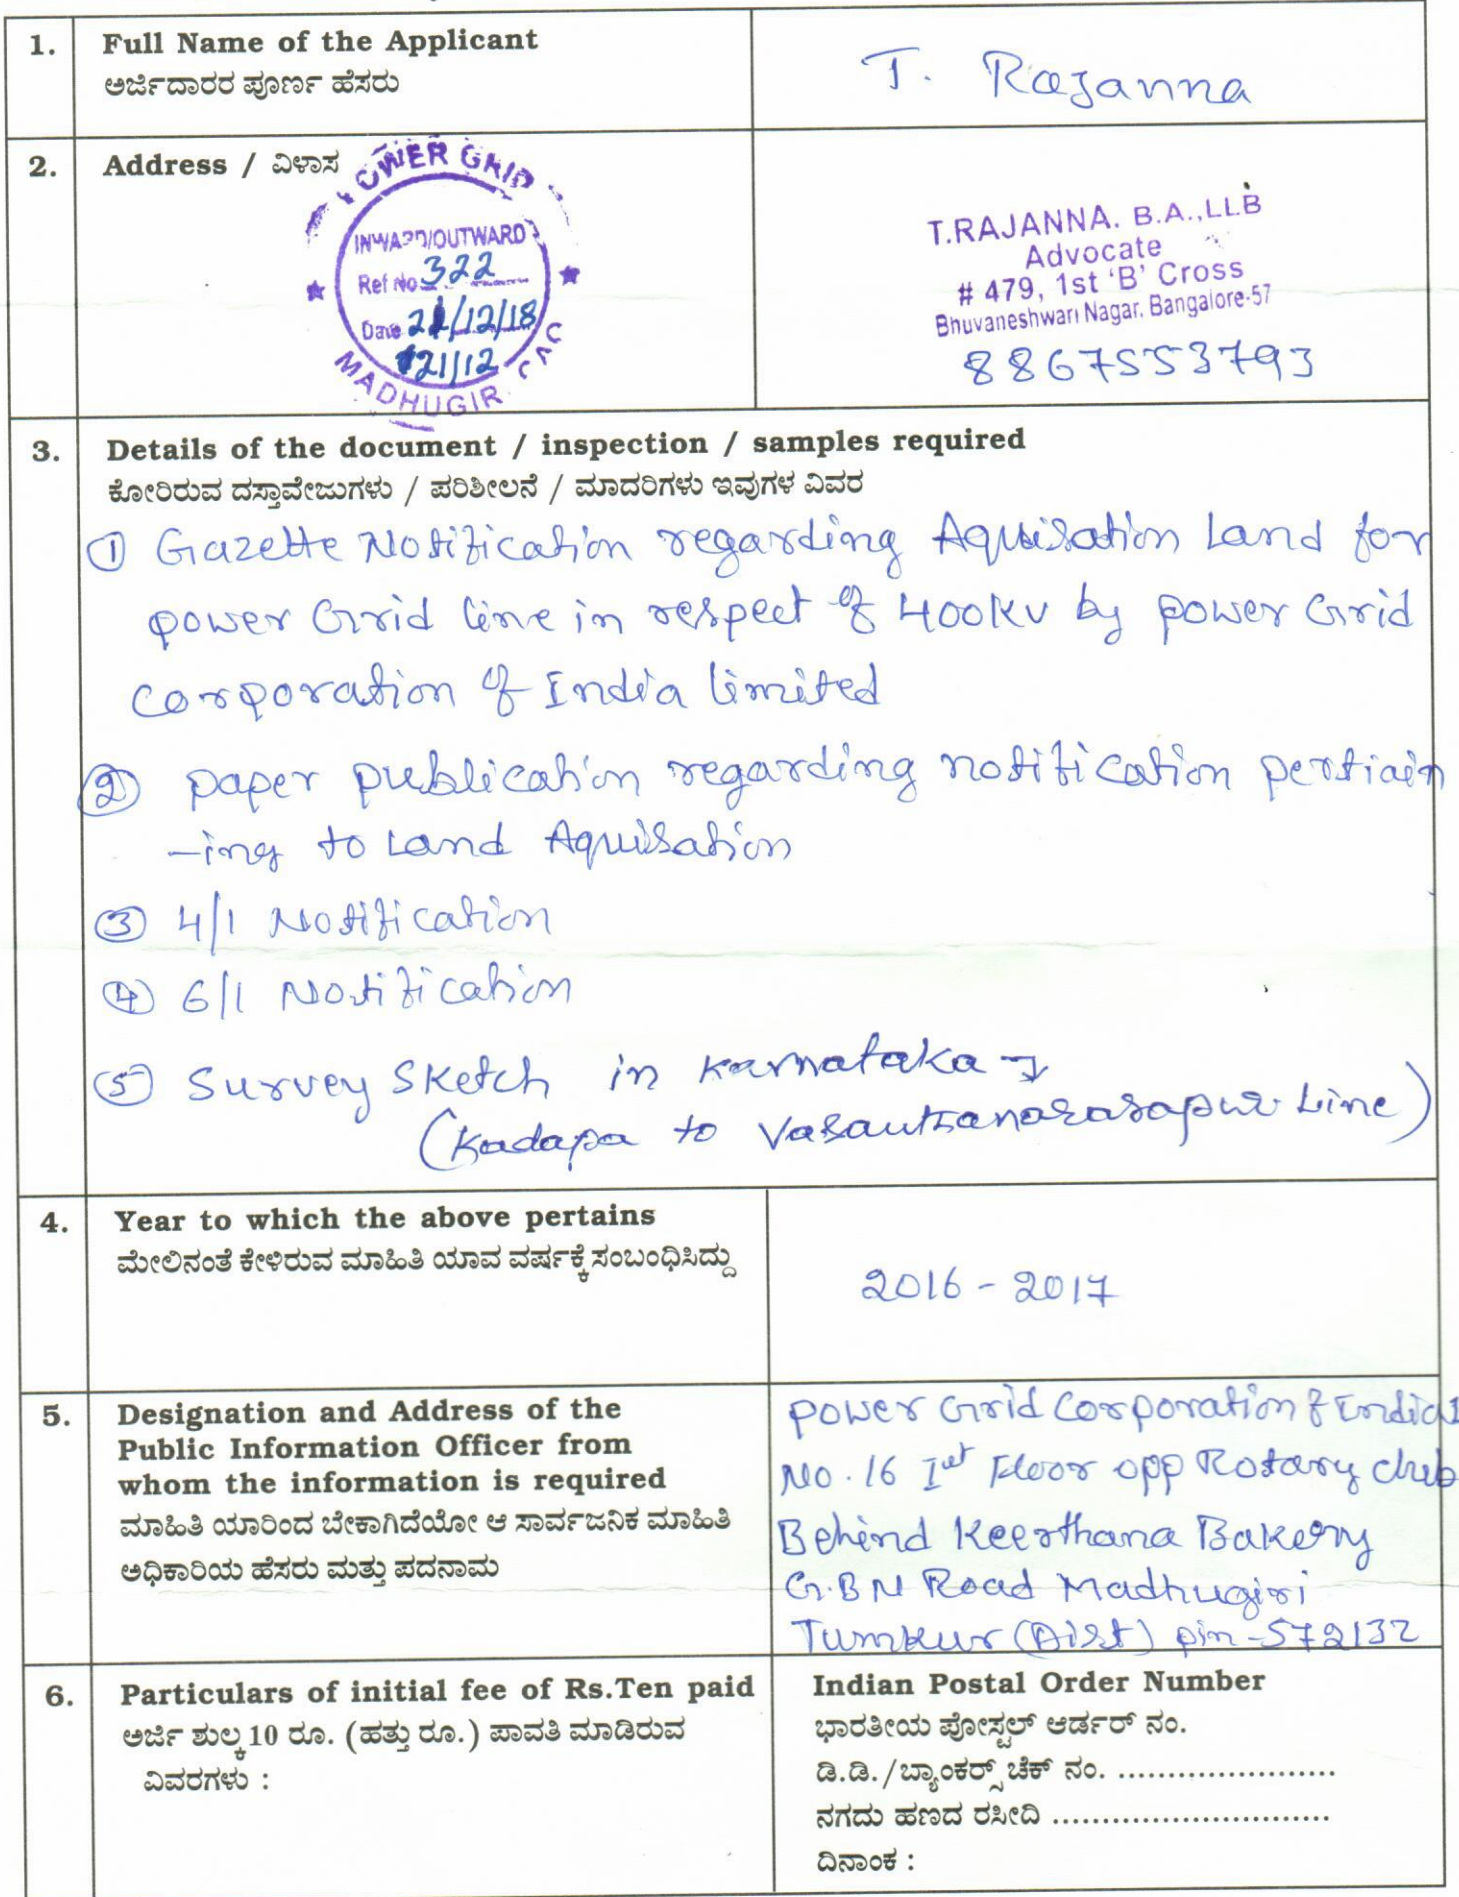 1. Full Name of the Applicant
ಅರ್ಜಿದಾರರ ಪೂರ್ಣ ಹೆಸರು
T. Rajanna
2. Address / ವಿಳಾಸ
POWER GRID
INWARD/OUTWARD
Ref No. 322
Date 21/12/18
21/12
MADHUGIRI
T.RAJANNA. B.A.,LLB
Advocate
# 479, 1st 'B' Cross
Bhuvaneshwari Nagar. Bangalore-57
8867553793
3. Details of the document / inspection / samples required
ಕೋರಿರುವ ದಸ್ತಾವೇಜುಗಳು / ಪರಿಶೀಲನೆ / ಮಾದರಿಗಳು ಇವುಗಳ ವಿವರ
① Gazette Notification regarding Aquisation Land for
power Grid line in respect of 400KV by power Grid
corporation of India limited
② paper publication regarding notification pertiain
-ing to Land Aquisation
③ 4/1 Notification
④ 6/1 Notification
⑤ Survey Sketch in Karnataka
(Kadapa to Vasanthanarasapur Line)
4. Year to which the above pertains
ಮೇಲಿನಂತೆ ಕೇಳಿರುವ ಮಾಹಿತಿ ಯಾವ ವರ್ಷಕ್ಕೆ ಸಂಬಂಧಿಸಿದ್ದು
2016 - 2017
5. Designation and Address of the
Public Information Officer from
whom the information is required
ಮಾಹಿತಿ ಯಾರಿಂದ ಬೇಕಾಗಿದೆಯೋ ಆ ಸಾರ್ವಜನಿಕ ಮಾಹಿತಿ
ಅಧಿಕಾರಿಯ ಹೆಸರು ಮತ್ತು ಪದನಾಮ
power Grid Corporation of India
No. 16 Ist Floor opp Rotary club
Behind Keerthana Bakery
G.B N Road Madhugiri
Tumkur (Dist) pin-572132
6. Particulars of initial fee of Rs.Ten paid
ಅರ್ಜಿ ಶುಲ್ಕ 10 ರೂ. (ಹತ್ತು ರೂ.) ಪಾವತಿ ಮಾಡಿರುವ
ವಿವರಗಳು :
Indian Postal Order Number
ಭಾರತೀಯ ಪೋಸ್ಟಲ್ ಆರ್ಡರ್ ನಂ.
ಡಿ.ಡಿ./ಬ್ಯಾಂಕರ್ಸ್ ಚೆಕ್ ನಂ. ......................
ನಗದು ಹಣದ ರಸೀದಿ ............................
ದಿನಾಂಕ :